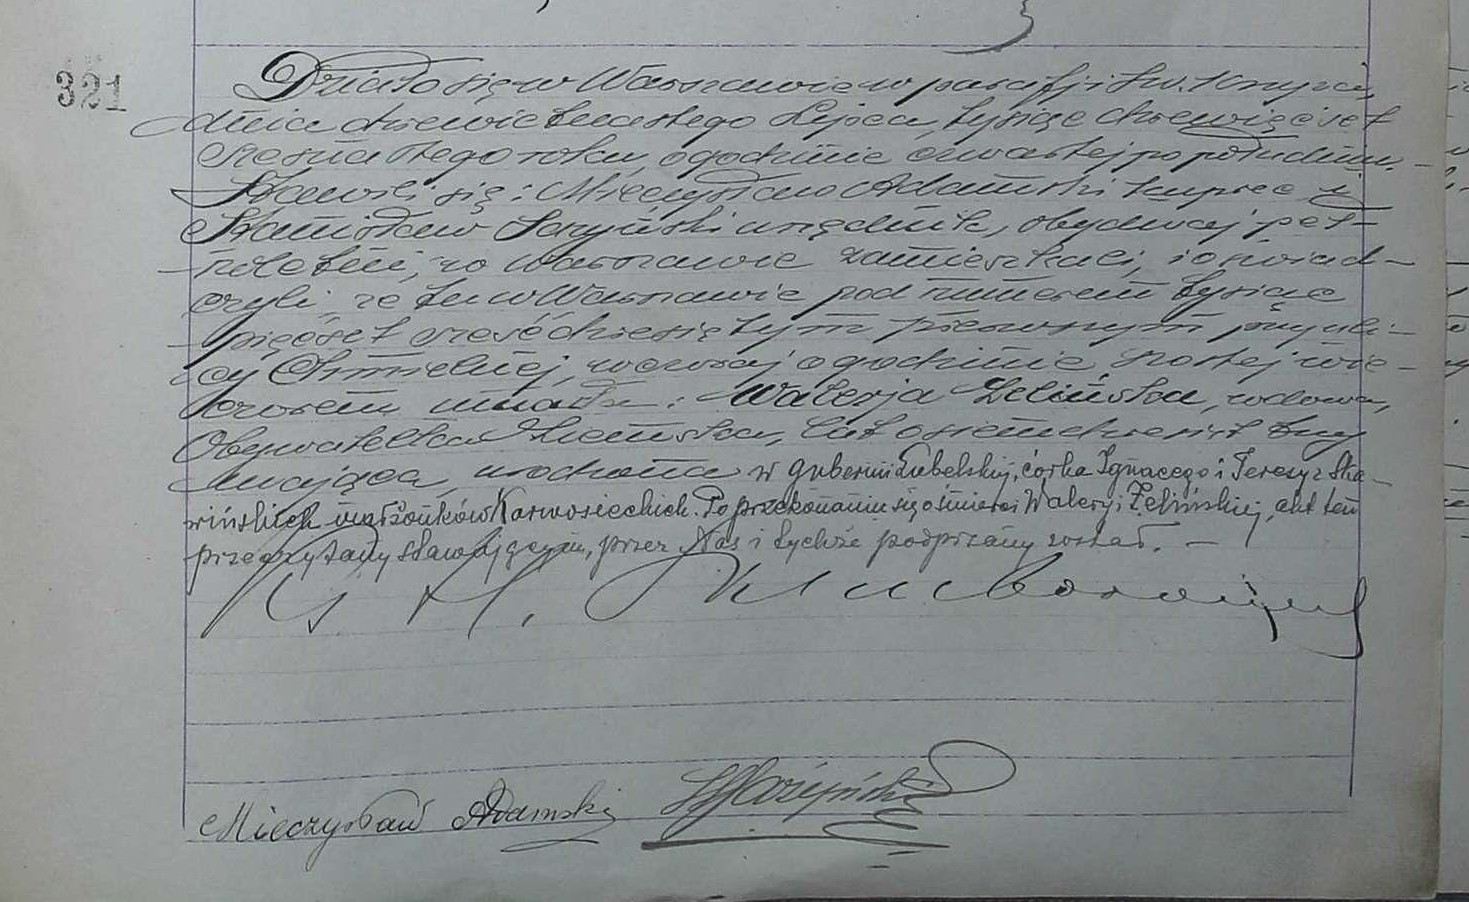 321
Działo się w Warszawie w parafji św. Krzyża,
dnia dziewiętnastego Lipca, tysiąc dziewięćset
szesnastego roku, o godzinie czwartej po południu.
Stawili się: Mieczysław Adamski kupiec i
Stanisław urzędnik, obydwaj peł-
noletni, w Warszawie zamieszkali, i oświad-
czyli, że tu w Warszawie pod numerem tysiąc
pięćset sześćdziesiątym pierwszym przy uli-
cy Chmielnej, wczoraj o godzinie szóstej wie-
czorem umarła: Walerja Zelińska, wdowa,
Obywatelka Ziemska, lat osiemdziesiąt trzy
mająca, urodzona w gubernii Lubelskiej, córka Ignacego i Teresy z Ska-
wińskich małżonków Karwosieckich. Po przekonaniu się o śmierci Waleryi Zelińskiej, akt ten
przeczytany stawającym, przez Nas i tychże podpisany został. —
Mieczysław Adamski